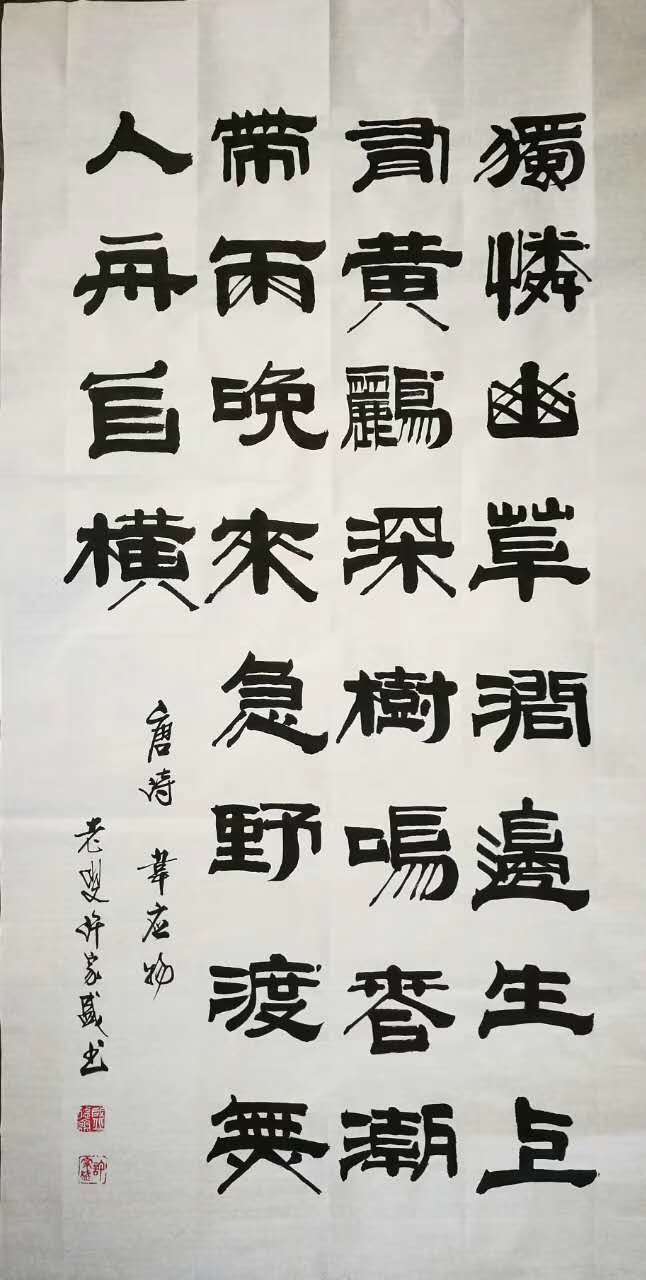 獨憐幽草澗邊生上
有黄鸝深樹鳴春潮
帶雨晚來急野渡無
人舟自横
唐诗 韋应物
老叟许家盛书